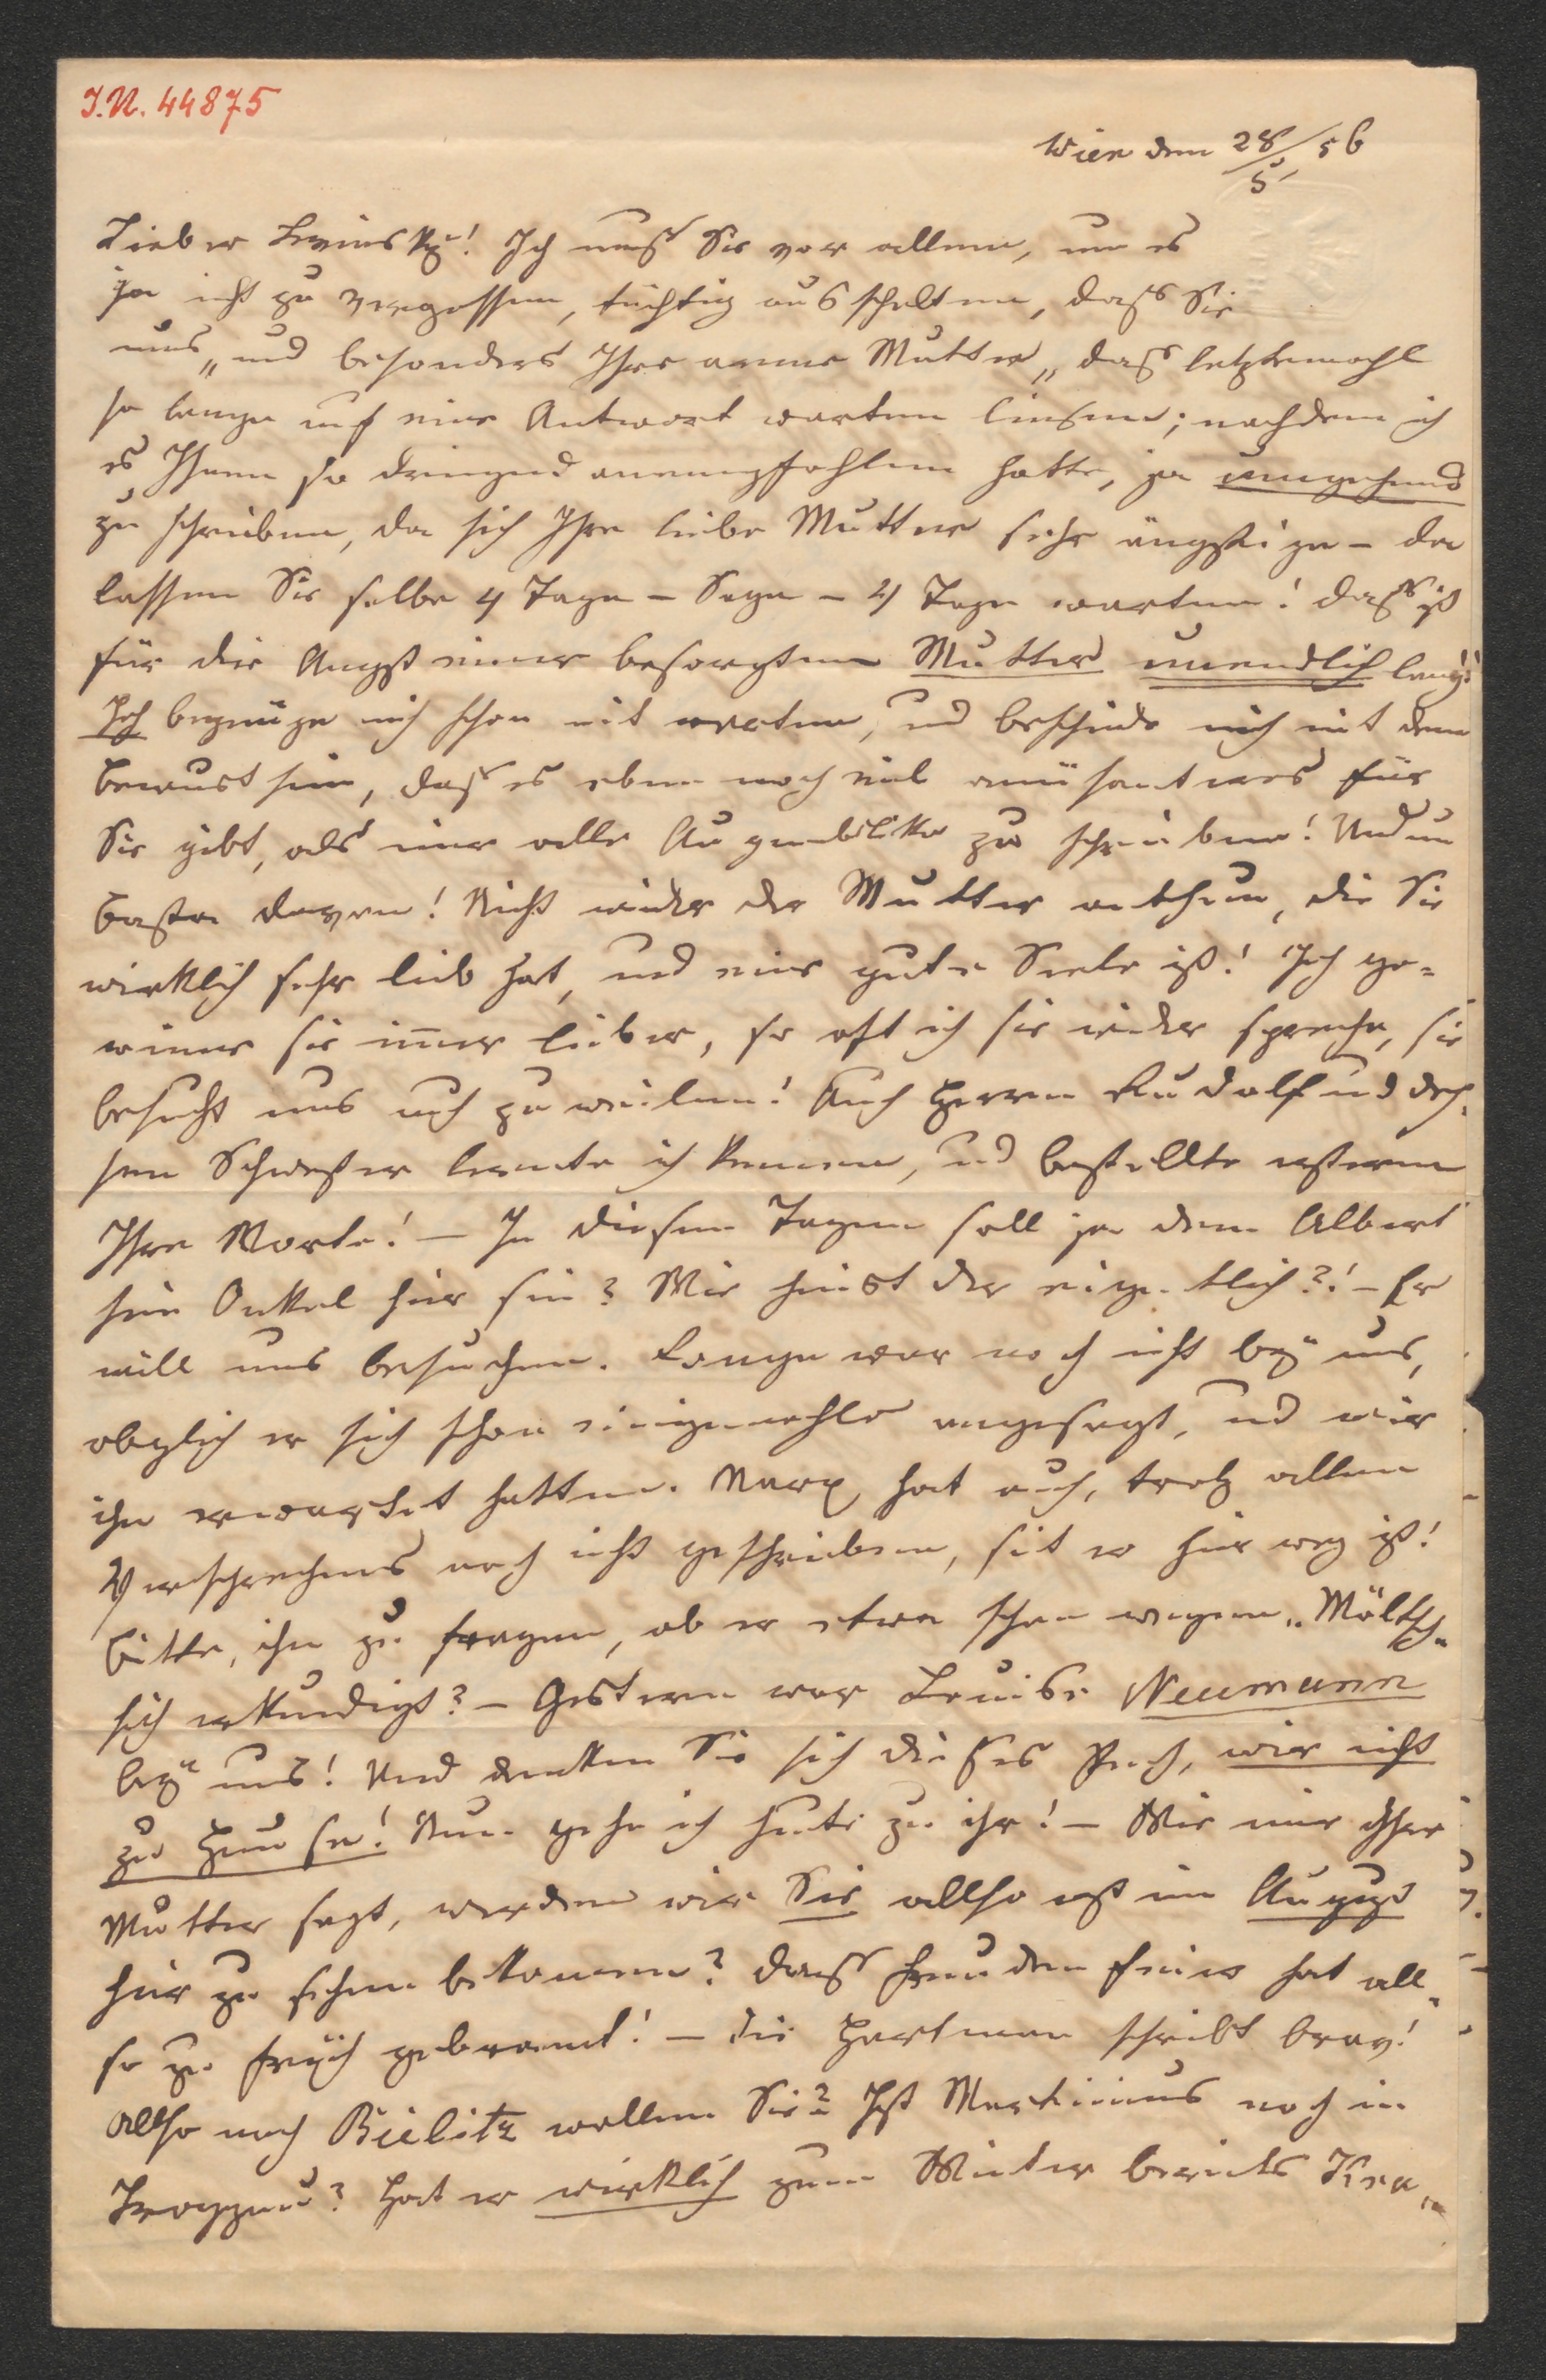 I.N. 44875
Wien den 28/5 56
Lieber Lewinsky! Ich muß Sie vor allem, um es
ja nicht zu vergessen, tüchtig ausschelten, daß Sie
uns „und besonders Ihre arme Mutter„ daß letztemahl
so lange auf eine Antwort warten ließen; nachdem ich
es Ihnen so dringend anempfohlen hatte, ja umgehend
zu schreiben, da sich Ihre liebe Mutter sehr ängstige – da
lassen Sie selbe 4 Tage – Sage – 4 Tage warten! daß ist
für die Angst einer besorgten Mutter unendlich lang!
Ich begnüge mich schon mit warten, und bescheide mich mit dem
Bewustsein, daß es eben noch viel amüsanteres für
Sie gibt, als mir alle Augenblikke zu schreiben! Und nun
Basta davon! Nicht wieder der Mutter anthun, die Sie
wirklich sehr lieb hat, und eine gute Seele ist! Ich ge-
winne sie im̅er lieber, so oft ich sie wieder spreche, sie
besucht uns auch zuweilen! Auch Herrn Rudolf und des-
sen Schwester lernte ich kennen, und bestellte ersterem
Ihre Worte! – In diesen Tagen soll ja dem Albert
sein Onkel hier sein? Wie heist der eigentlich?! – Er
will uns besuchen. Lange war noch nicht bey uns,
obglich er sich schon einigemahle angesagt, und wir
ihn erwartet hatten. Marx hat auch, trotz allen
Versprechens noch nicht geschrieben, seit er hier weg ist!
Bitte, ihn zu fragen, ob er etwa schon wegen „Möltsch„
sich erkundigt? – Gestern war Louise Neumann
bey uns! Und denken Sie sich dieses Pech, wir nicht
zu Hause! Nun gehe ich heute zu ihr! – Wie mir Ihre
Mutter sagt, werden wir Sie allso erst im August
hier zu sehen bekommen? daß Freudenfeuer hat all-
so zu früh gebrannt! – die Hartman schreibt brav!
Allso nach Bielitz wollen Sie? Ist Martinius noch in
Troppau? Hat er wirklich zum Winter bereits Kra-